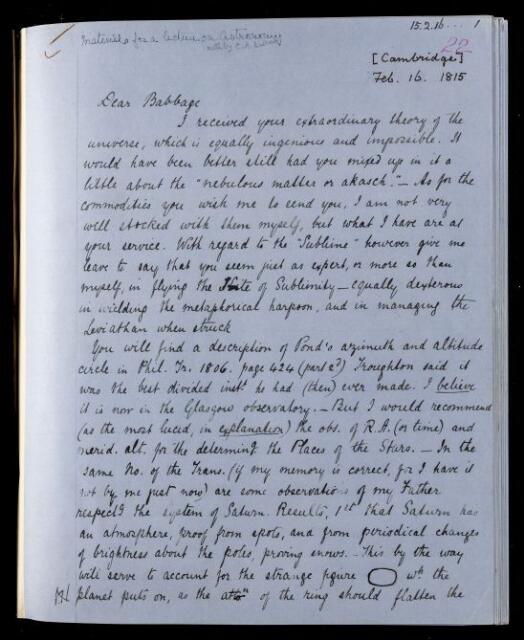 15.2.16 ... 1
Materials for a lecture on Astronomy
note by C.A.
22
[Cambridge]
Feb. 16. 1815
Dear Babbage
I received your extraordinary theory of the
universe, which is equally ingenious and impossible. It
would have been better still had you mixed up in it a
little about the "nebulous matter or akasch." — As for the
commodities you wish me to send you, I am not very
well stocked with them myself, but what I have are at
your service. With regard to the "Sublime" however give me
leave to say that you seem just as expert, or more so than
myself, in flying the Kite of Sublimity — equally dexterous
in wielding the metaphorical harpoon, and in managing the
Leviathan when struck
You will find a description of Pond's azimuth and altitude
circle in Phil. Tr. 1806. page 424 (part 2d) Troughton said it
was the best divided instt he had (then) ever made. I believe
it is now in the Glasgow observatory. — But I would recommend
(as the most lucid, in explanation) the obs. of R.A. (or time) and
merid. alt. for the determing the Places of the Stars. — In the
same No. of the Trans. (if my memory is correct, for I have is
not by me just now) are some observations of my Father
respectg the system of Saturn. Results, 1st that Saturn has
an atmosphere, proof from spots, and from periodical changes
of brightness about the poles, proving snows. — This by the way
will serve to account for the strange figure wh the
planet puts on, as the attn of the ring should flatten the